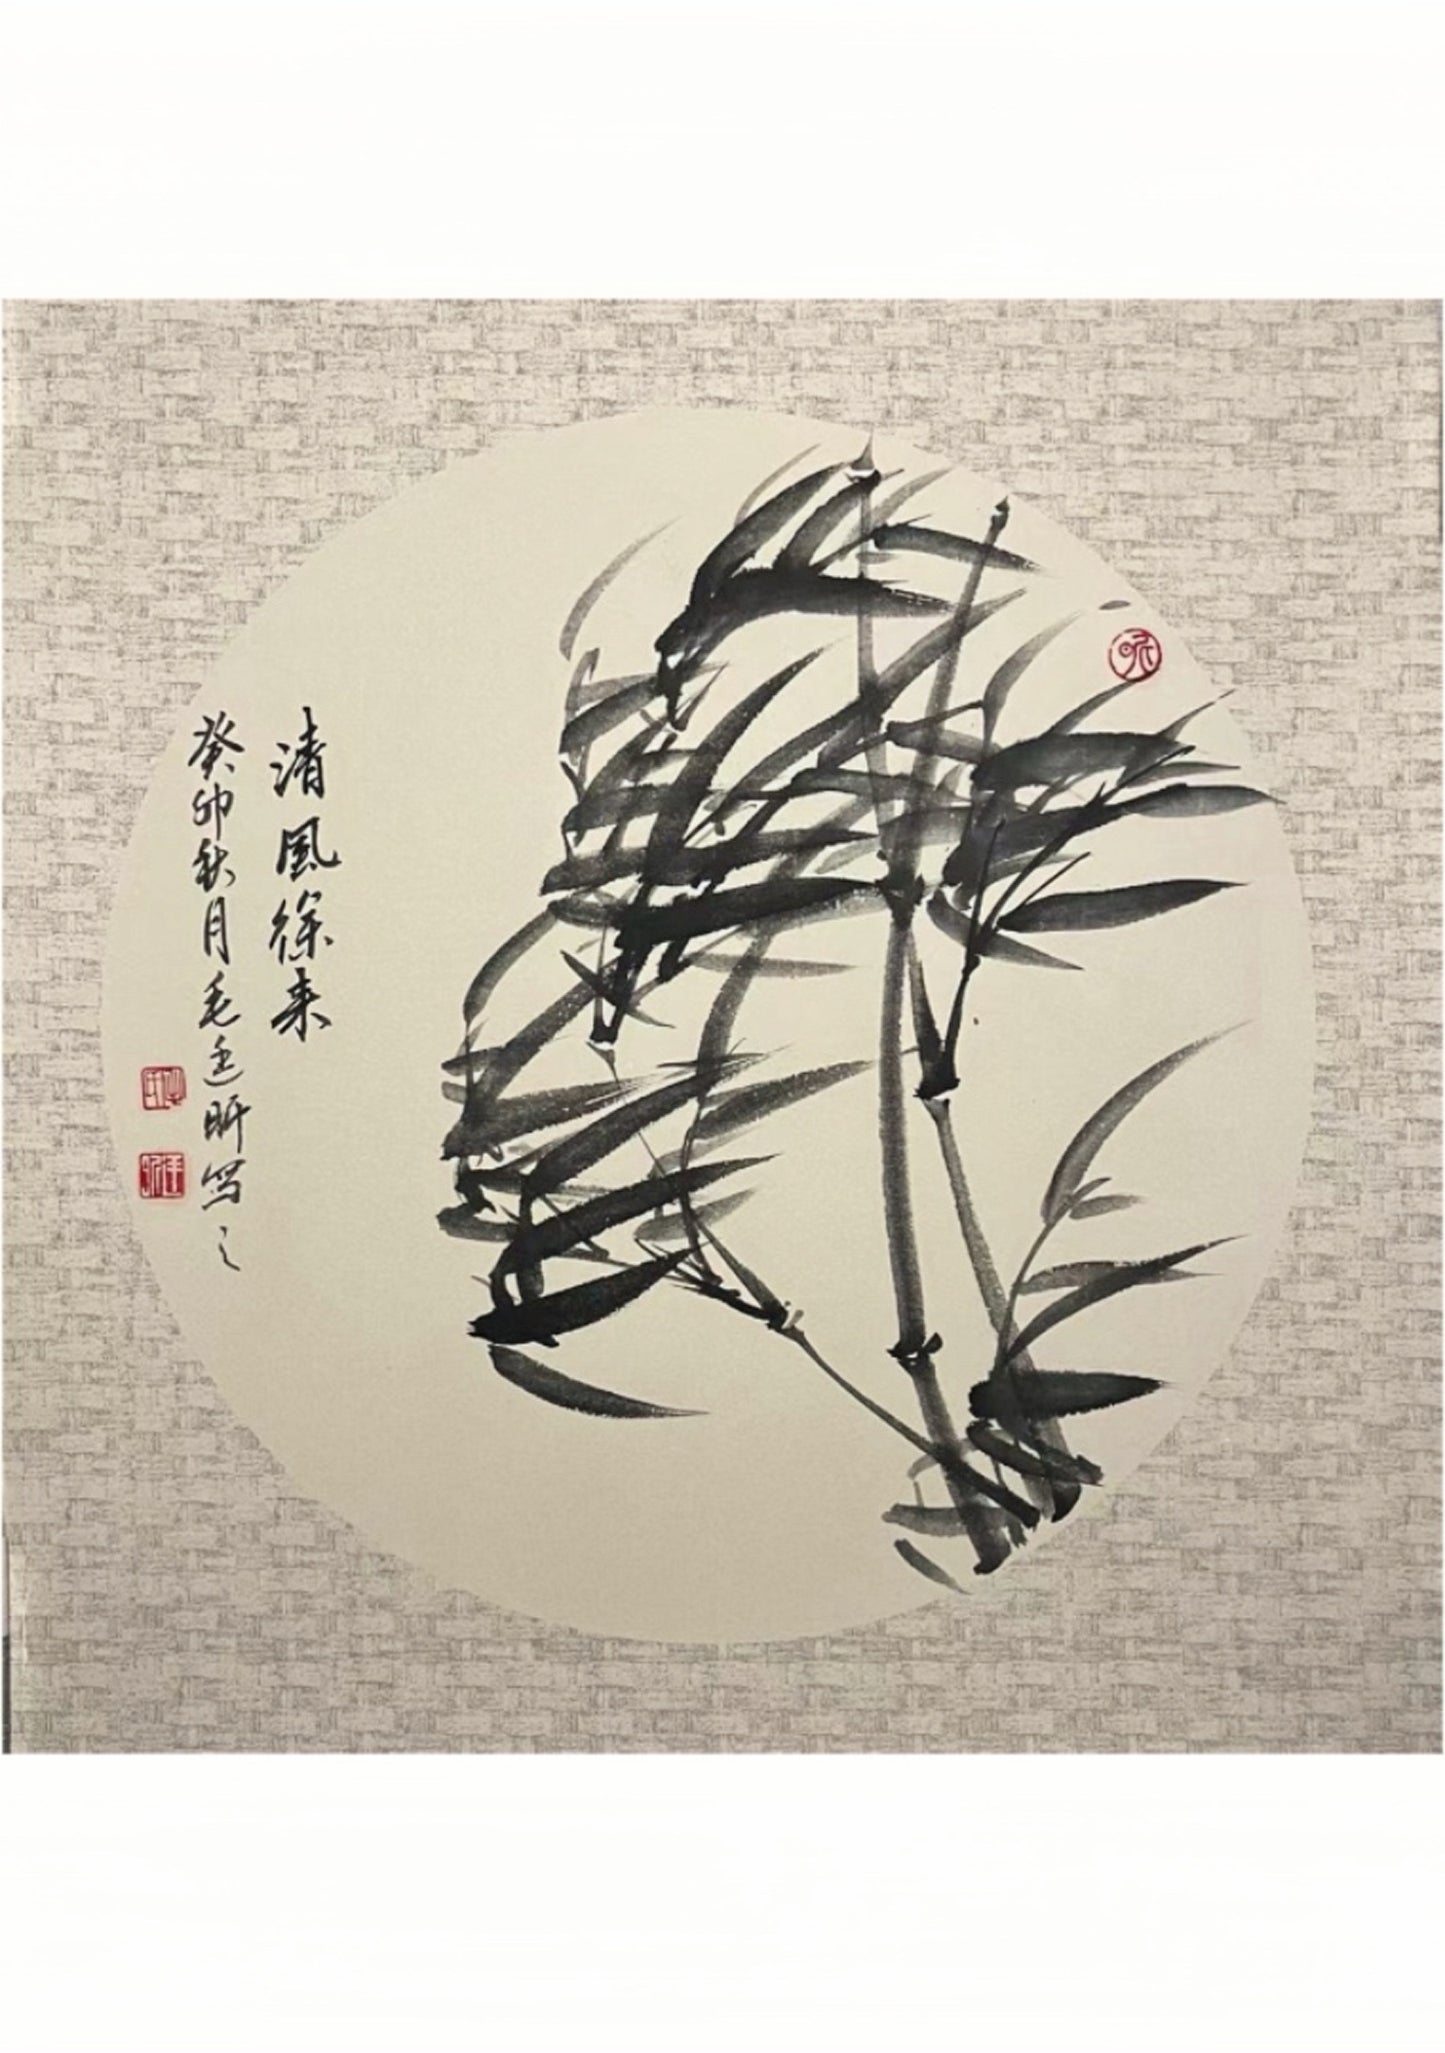 清風徐来
癸卯秋月毛廷昕写之